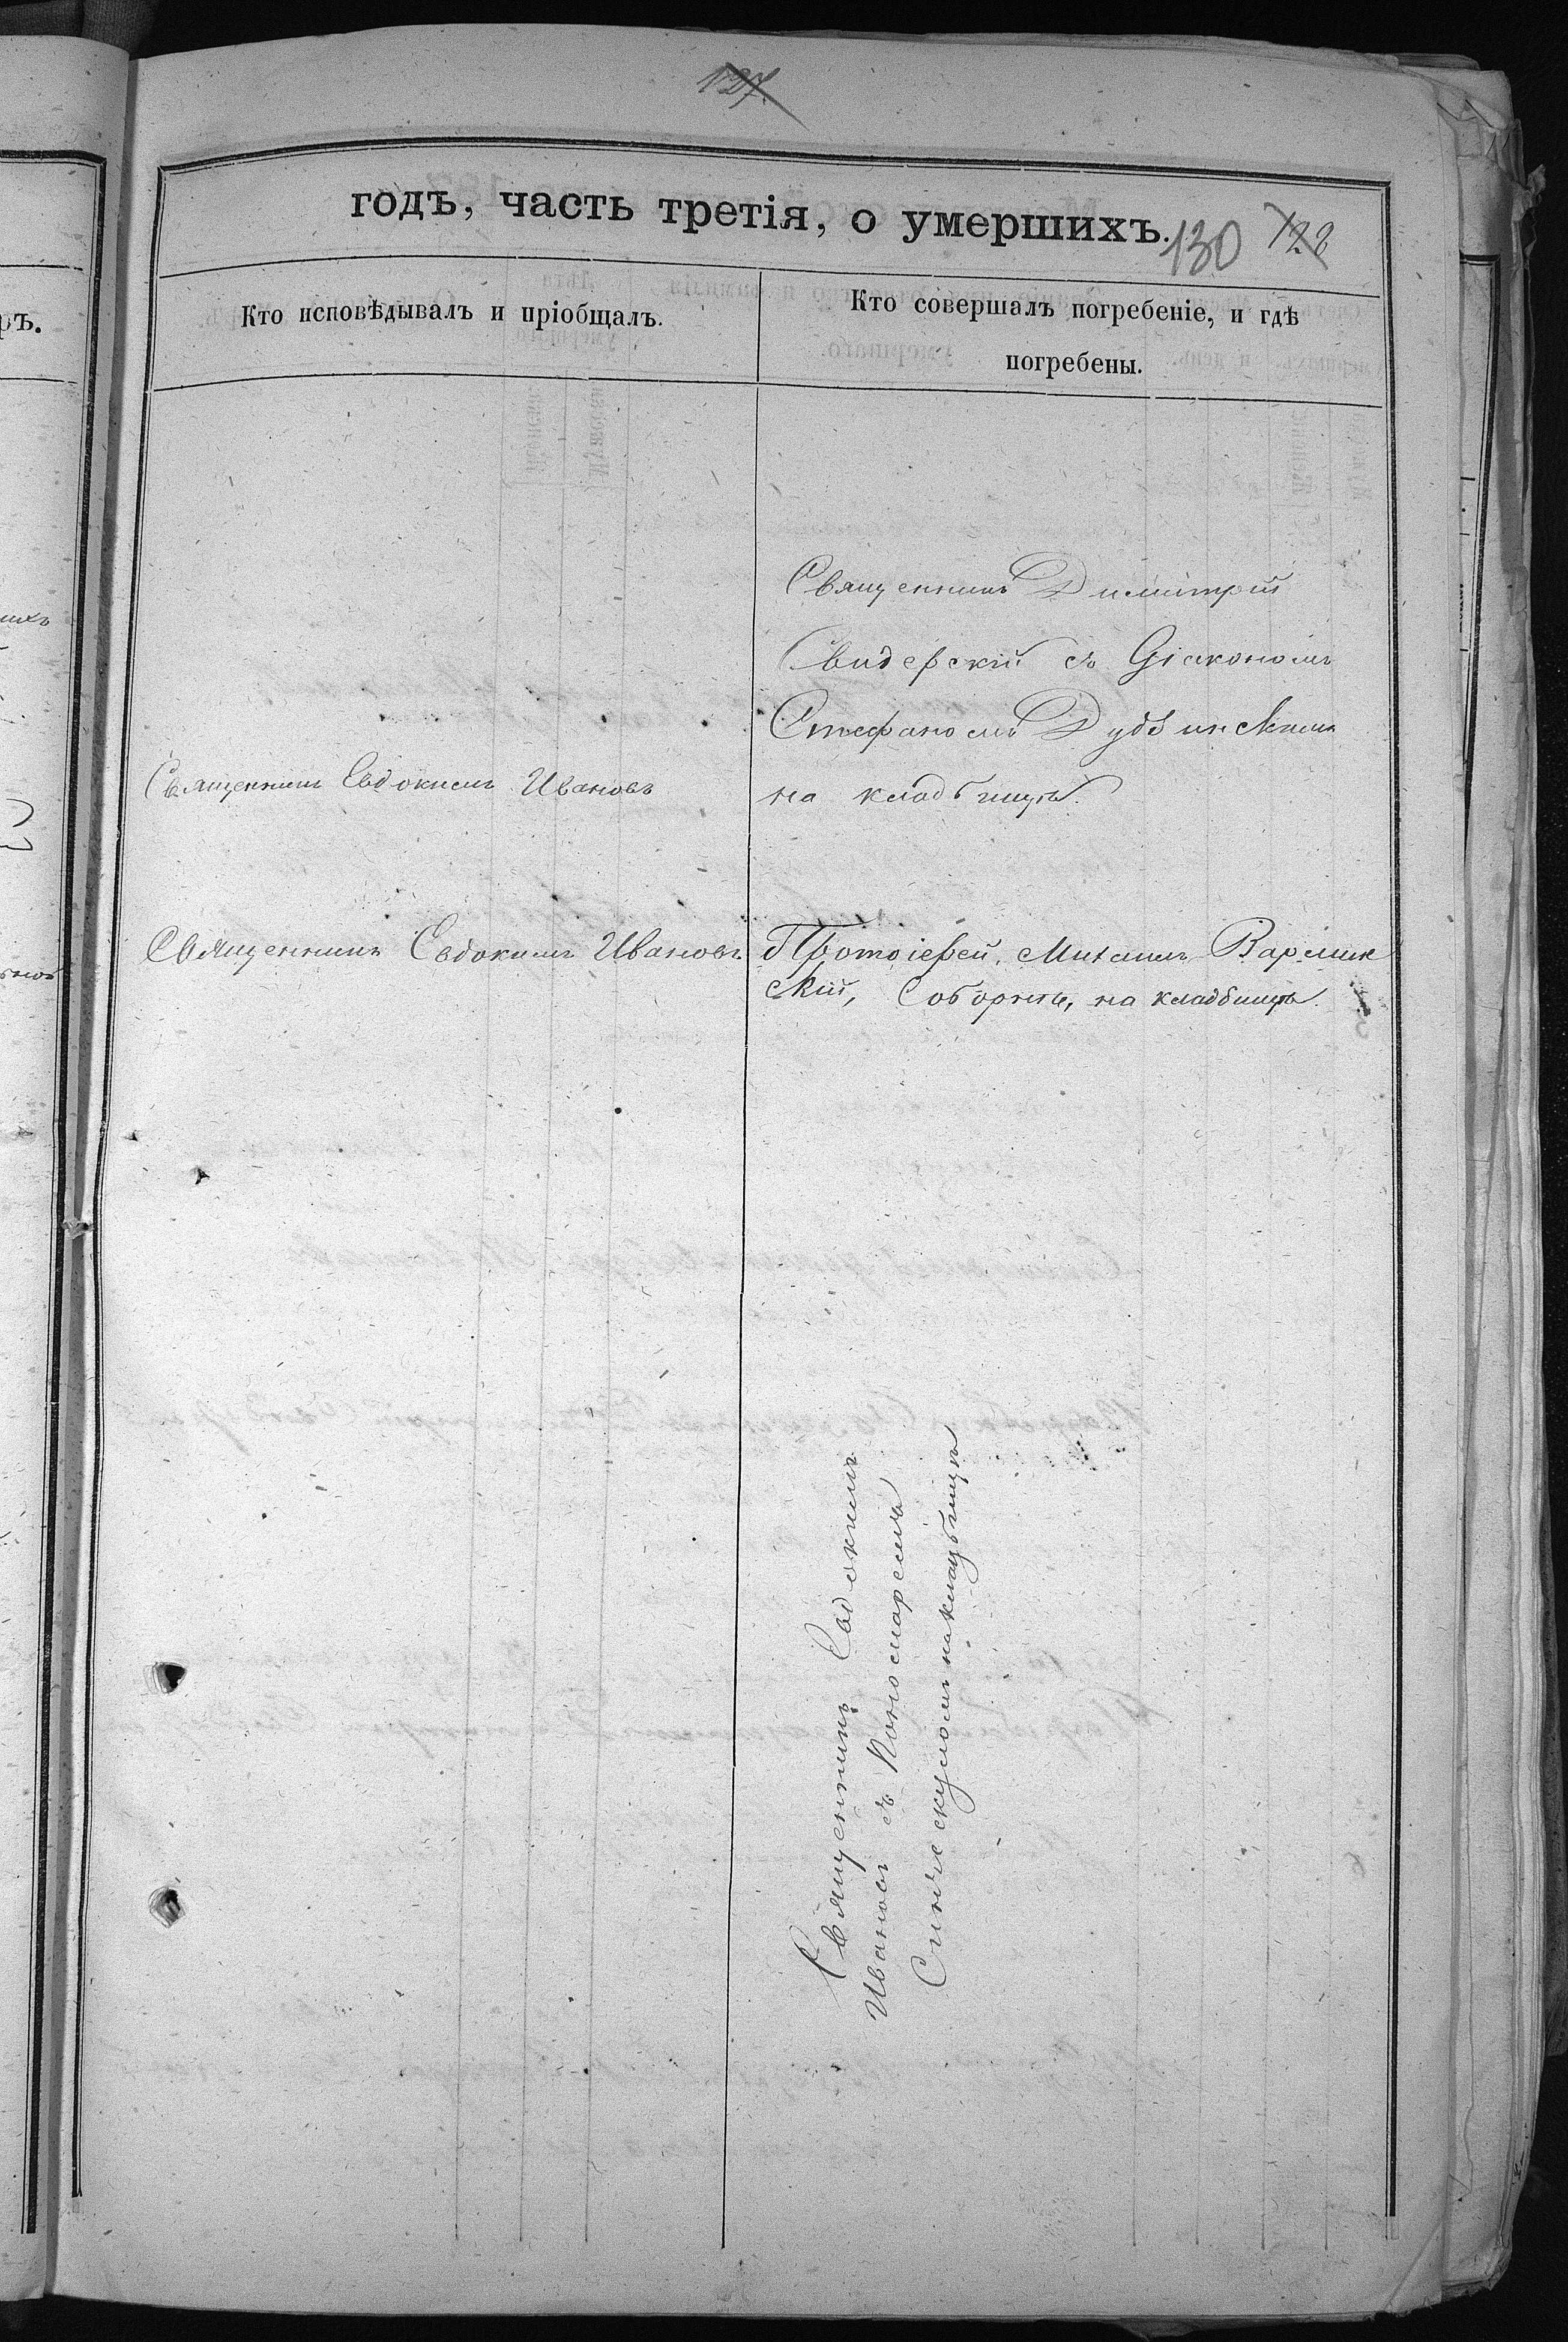 127
годъ, часть третія, о умершихъ.
130 128
Кто исповѣдывалъ и пріобщалъ.
Кто совершалъ погребеніе, и гдѣ
погребены.
Священникъ Димитрій
Свидерскій съ Діакономъ
Стефаномъ Дубинскимъ
на кладбищѣ.
Священникъ Евдокимъ Ивановъ
Священникъ Евдокимъ Ивановъ
Протоіерей, Михаилъ
скій, Соборнѣ, на кладбищѣ.
Священникъ Евдокимъ
Ивановъ съ Пономаремъ
на кладбищѣ